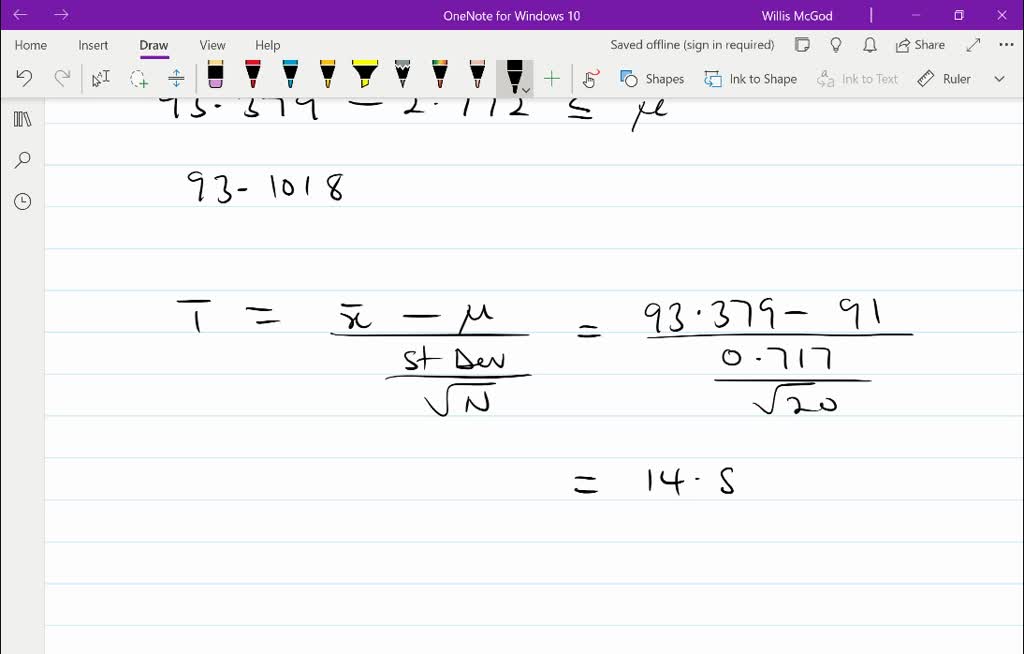 OneNote for Windows 10 Willis McGod
Home Insert Draw View Help Saved offline (sign in required) Share
Shapes Ink to Shape Ink to Text Ruler
93.379 - 2.112 ≤ μ
93-1018
T = x̄ - μ / St Dev / √N = 93.379 - 91 / 0.717 / √20
= 14.8